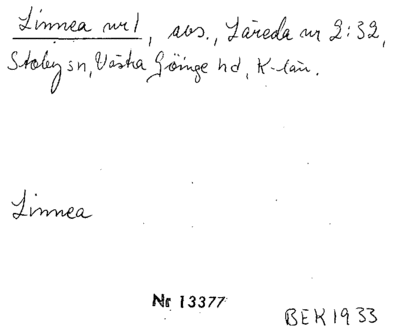 Linnea nr 1, avs., Läreda nr 2:32,
Stoby sn, Västra Göinge hd, K-län.
Linnea
Nr 13377
BEK 1933